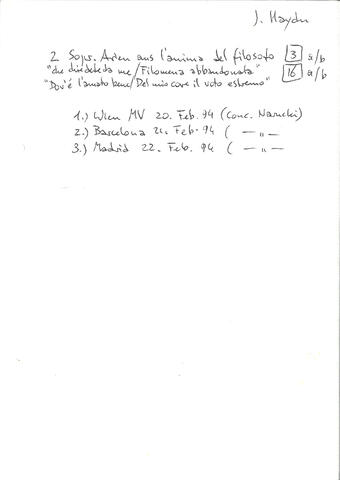 J. Haydn
2 Sopr. Arien aus l'anima del filosofo [3] a/b
"che chiedete da me / Filomena abbandonata" [16] a/b
"Dov'è l'amato bene / Del mio core il voto estremo"
1.) Wien MV 20. Feb. 94 (Conc.
2.) Barcelona 21. Feb. 94 ( — „ —
3.) Madrid 22. Feb. 94 ( — „ —